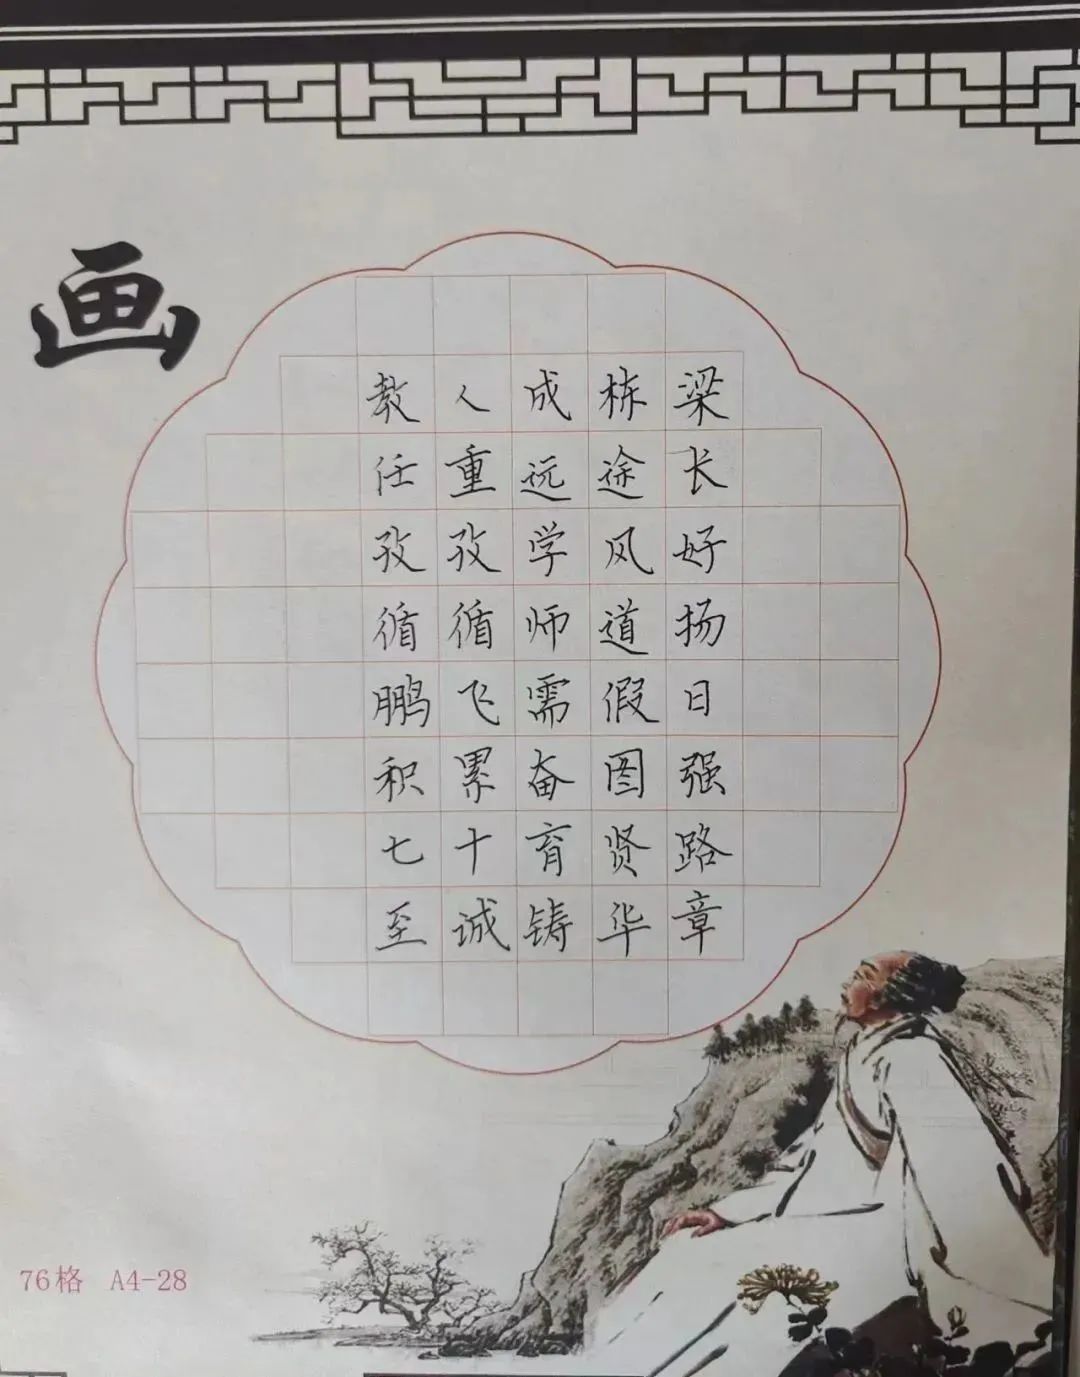 画
教人成栋梁
任重远途长
孜孜学风好
循循师道扬
鹏飞需假日
积累奋图强
七十育贤路
至诚铸华章
76格 A4-28